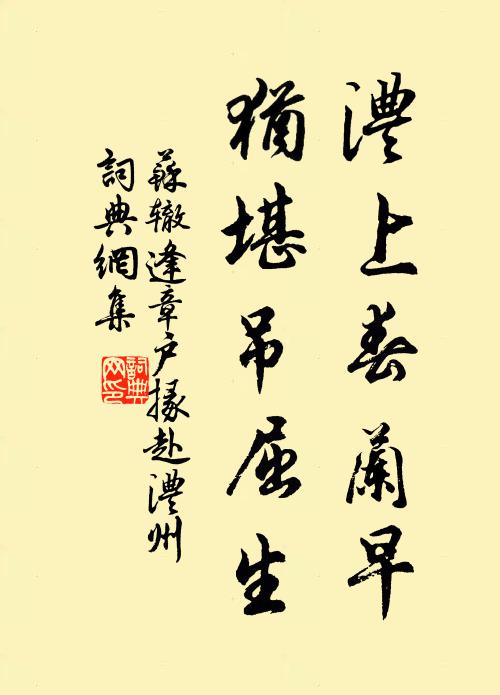 澧上春蘭早
猶堪吊屈生
蘇轍逢章戶掾赴澧州
詞典網集
詞典網印